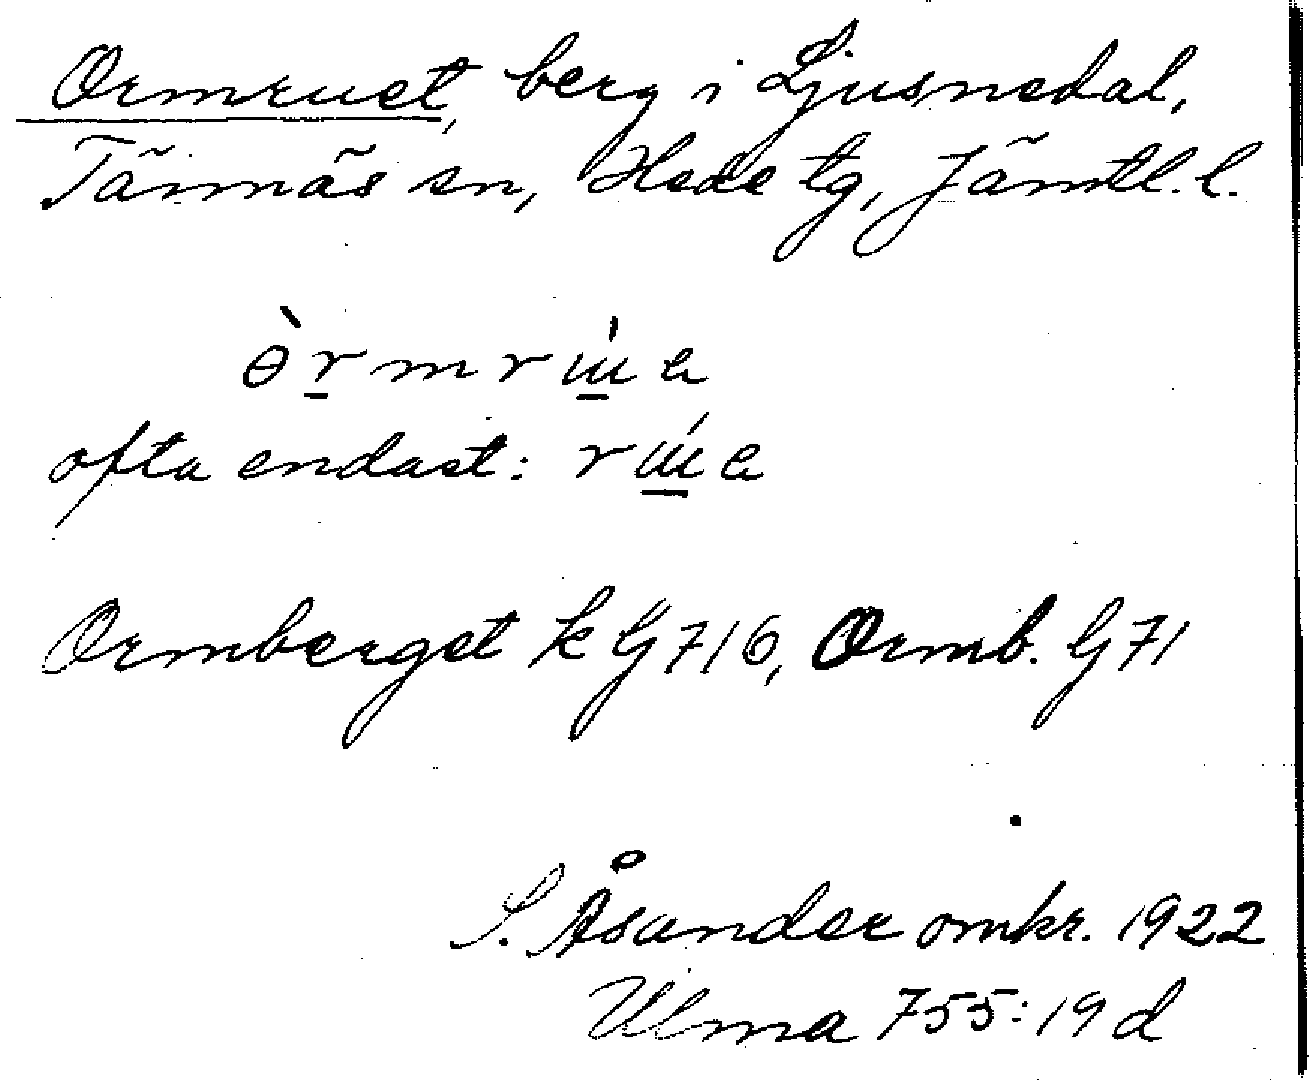 Ormruet, berg i Ljusnedal,
Tännäs sn, Hede tg, Jämtl. l.
ofta endast:
Ormberget k G 716, Ormb. G 71
S. Åsander omkr. 1922
Ulma 755:19 d